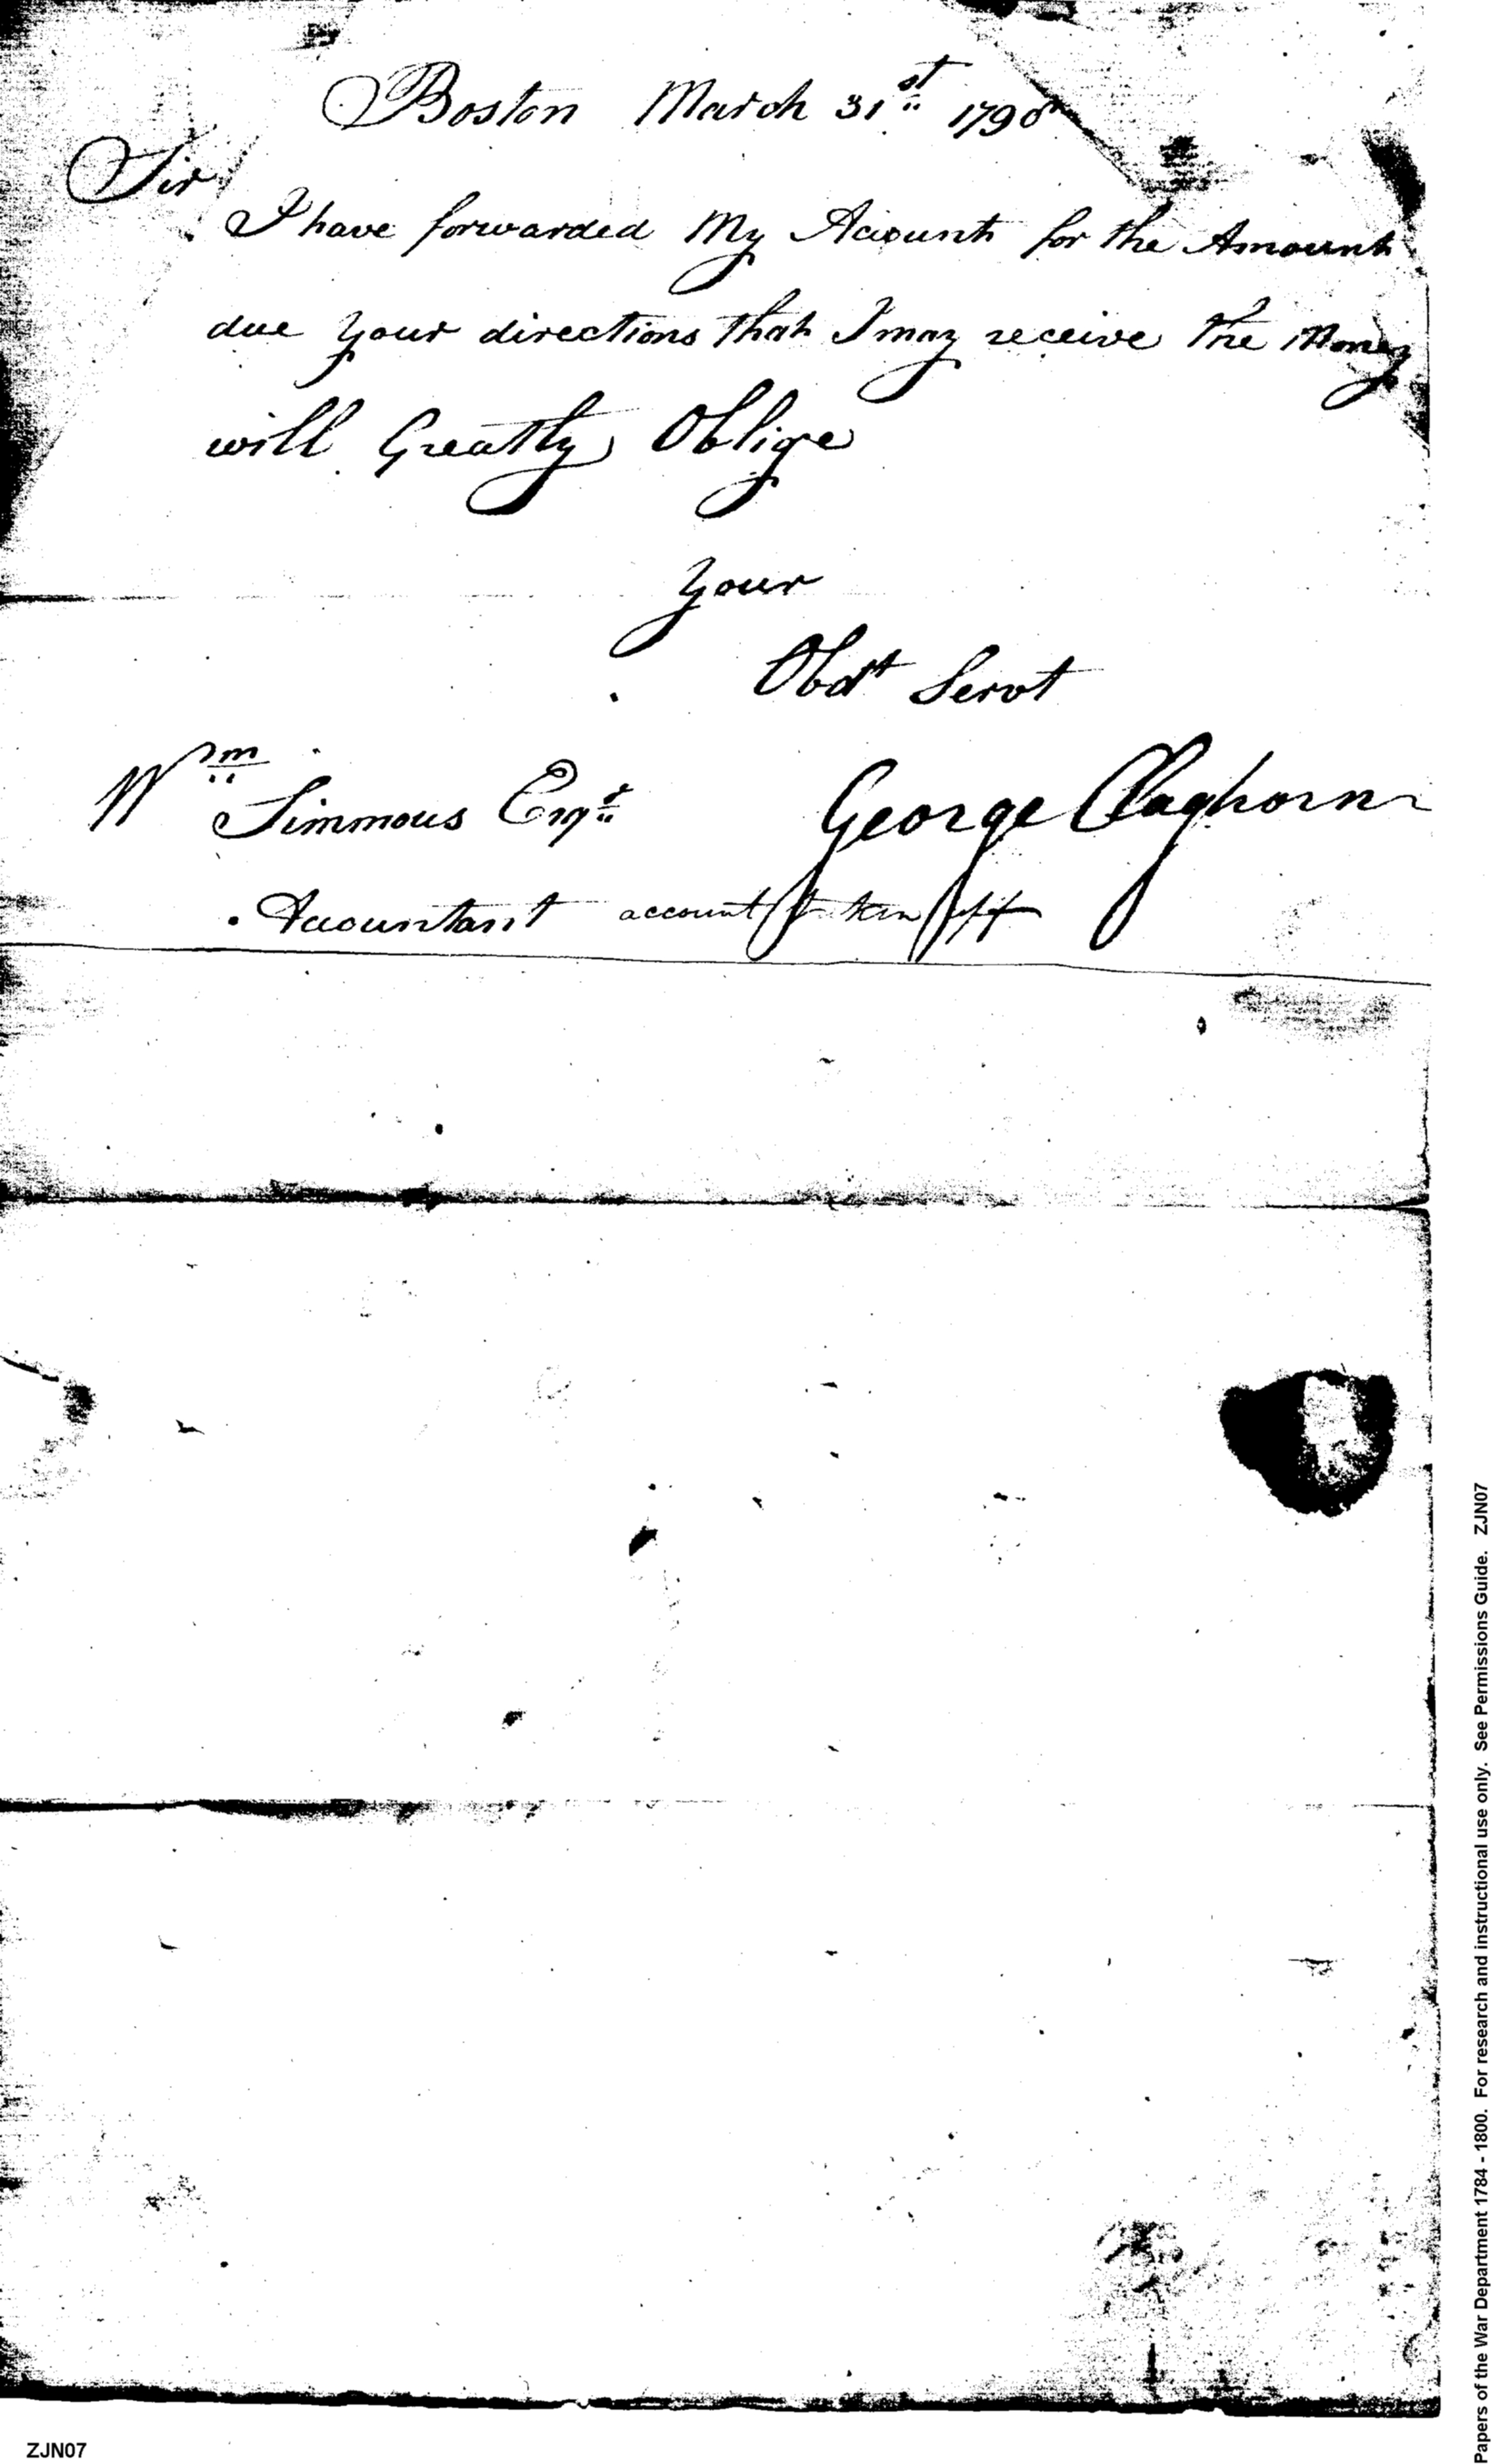 Boston March 31st 1798
Sir
I have forwarded My Account for the Amount
due Your directions that I may receive the Money
will Greatly Oblige
Your
Obdt Servt
Wm Simmons Esqr George Claghorn
Accountant account taken off
Papers of the War Department 1784 - 1800. For research and instructional use only. See Permissions Guide. ZJN07
ZJN07